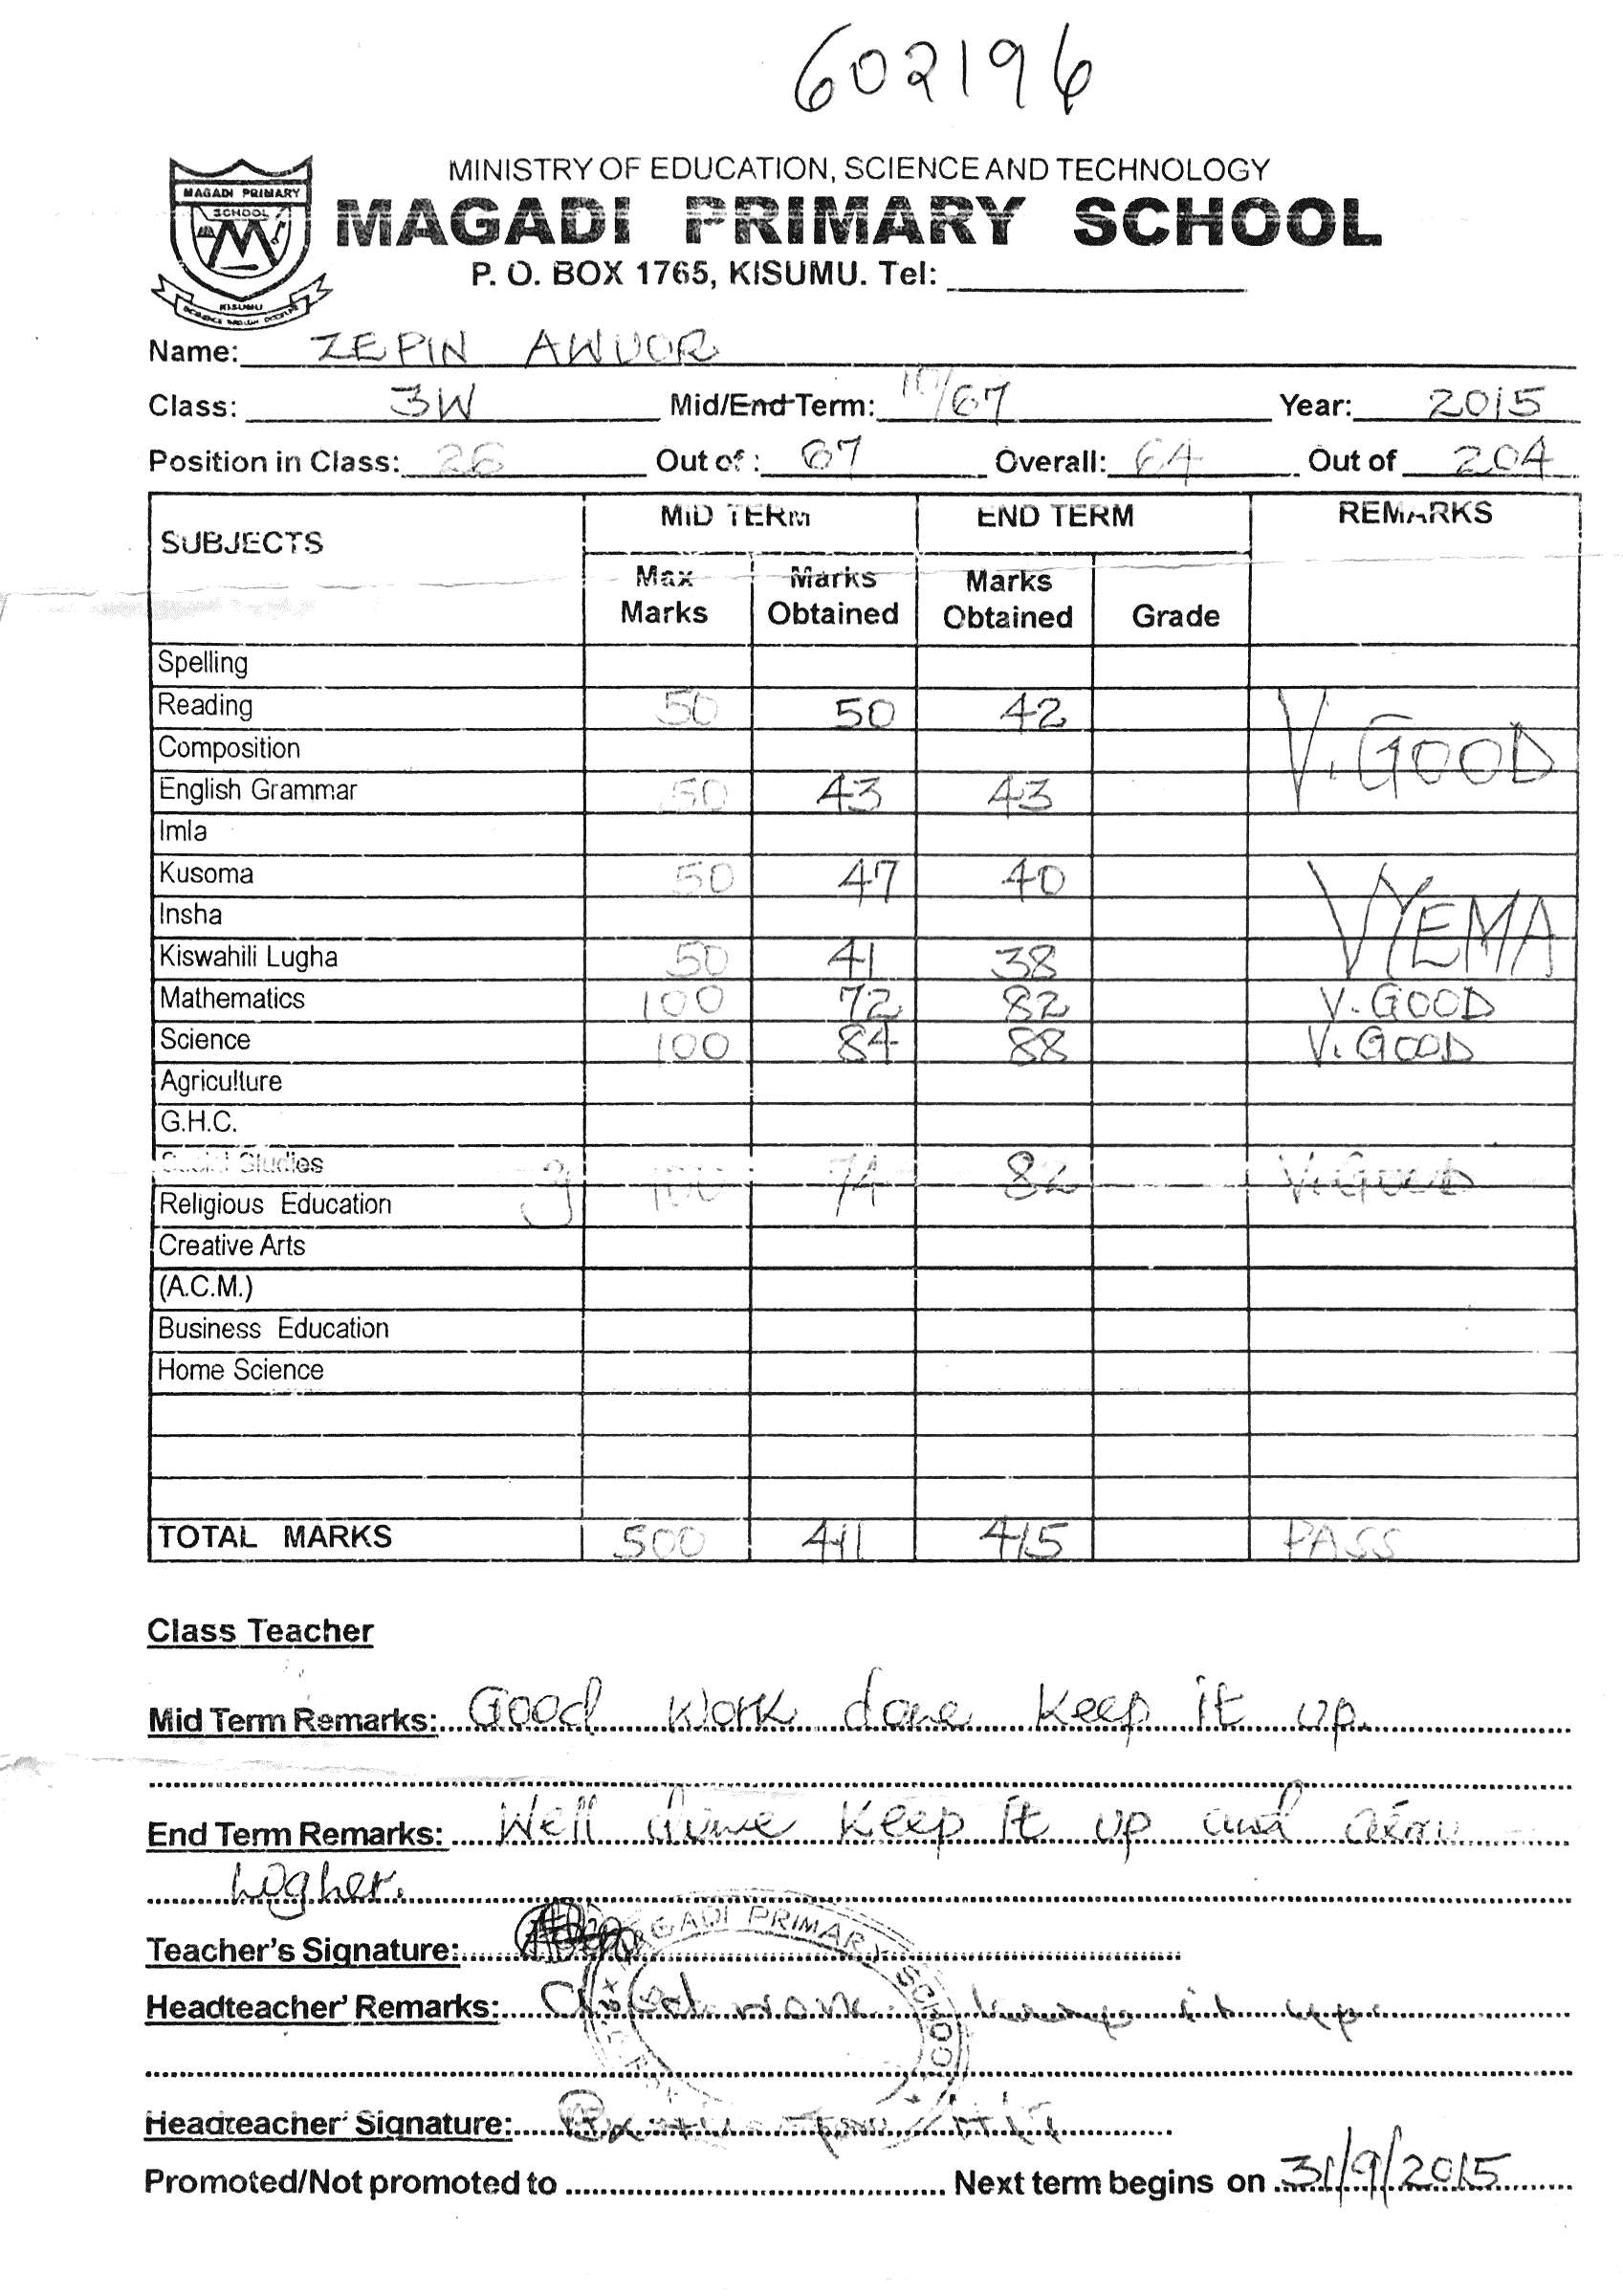 602196
MINISTRY OF EDUCATION, SCIENCE AND TECHNOLOGY
MAGADI PRIMARY SCHOOL
MAGADI PRIMARY
SCHOOL
KISUMU
P. O. BOX 1765, KISUMU. Tel:
Name: ZEPIN AWUOR
Class: 3W Mid/End Term: /67 Year: 2015
Position in Class: 26 Out of : 67 Overall: 64 Out of 204
SUBJECTS MID TERM END TERM REMARKS
Max Marks Marks Obtained Marks Obtained Grade
Spelling
Reading 50 50 42 V. GOOD
Composition
English Grammar 50 43 43
Imla
Kusoma 50 47 40 VYEMA
Insha
Kiswahili Lugha 50 41 38
Mathematics 100 72 82 V. GOOD
Science 100 84 88 V. GOOD
Agriculture
G.H.C.
Social Studies 100 74 82 V. GOOD
Religious Education
Creative Arts
(A.C.M.)
Business Education
Home Science
TOTAL MARKS 500 411 415 PASS
Class Teacher
Mid Term Remarks: Good work done keep it up.
End Term Remarks: Well done keep it up and aim
higher.
Teacher's Signature:
MAGADI PRIMARY SCHOOL
Headteacher' Remarks: keep it up.
Headteacher' Signature:
Promoted/Not promoted to Next term begins on 31/9/2015